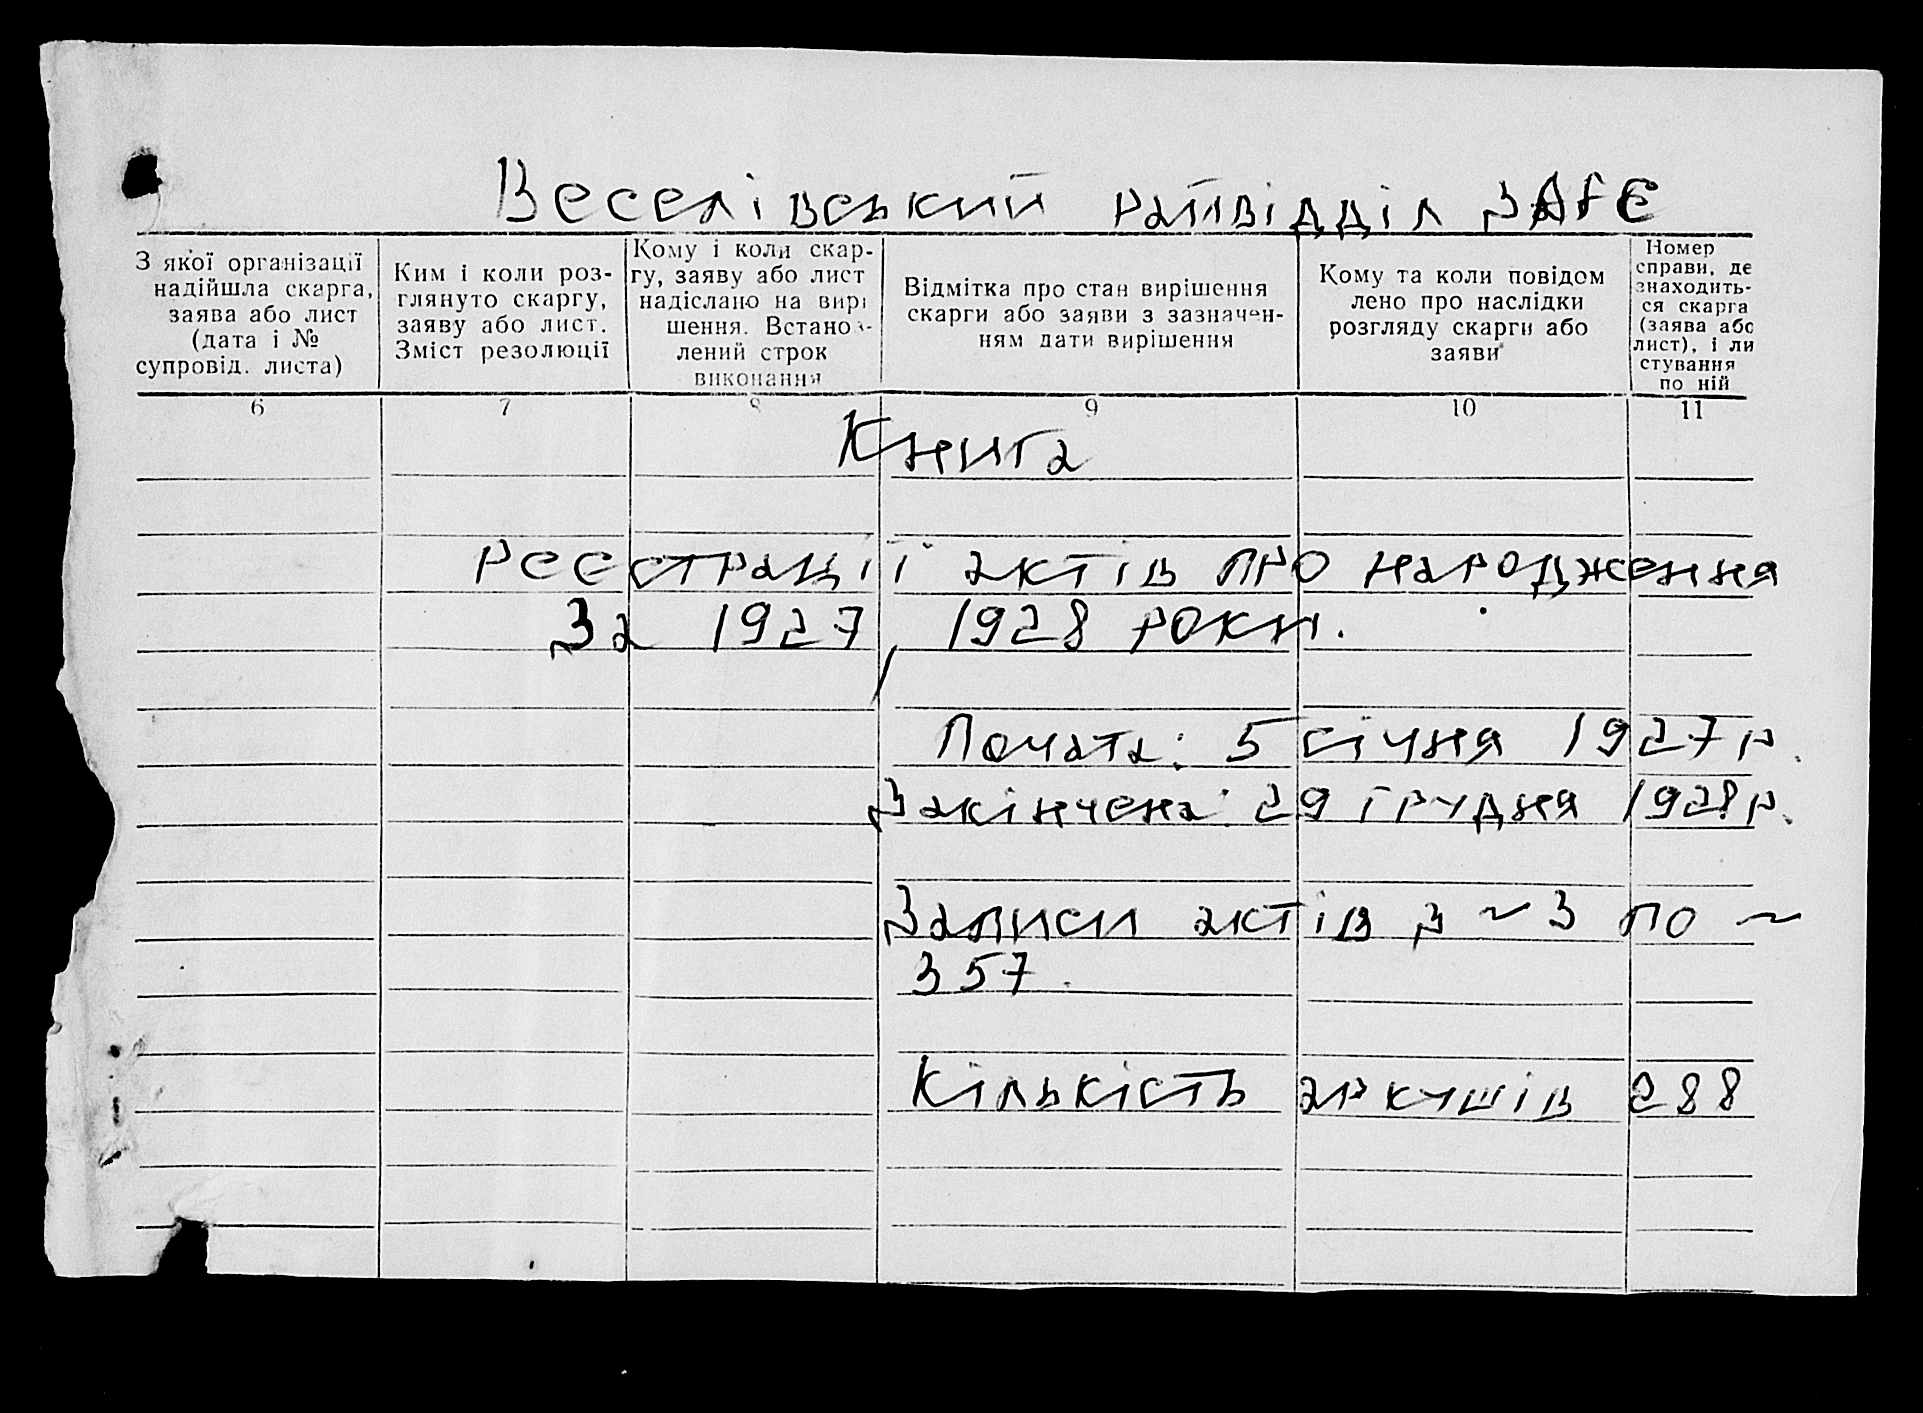 Веселівський райвідділ ЗАГС
З якої організації
надійшла скарга,
заява або лист
(дата і №
супровід. листа)
Ким і коли роз-
глянуто скаргу,
заяву або лист.
Зміст резолюції
Кому і коли скар-
гу, заяву або лист
надіслано на вирі
шення. Встанов-
лений строк
виконання
Відмітка про стан вирішення
скарги або заяви з зазначен-
ням дати вирішення
Кому та коли повідом
лено про наслідки
розгляду скарги або
заяви
Номер
справи, де
знаходить-
ся скарга
(заява або
лист), і ли
стування
по ній
6 7 8 9 10 11
Книга
реєстрації актів про народження
За 1927, 1928 роки.
Почата: 5 січня 1927 р.
Закінчена: 29 грудня 1928 р.
Записи актів з ~ 3 по ~
357.
Кількість аркушів 288